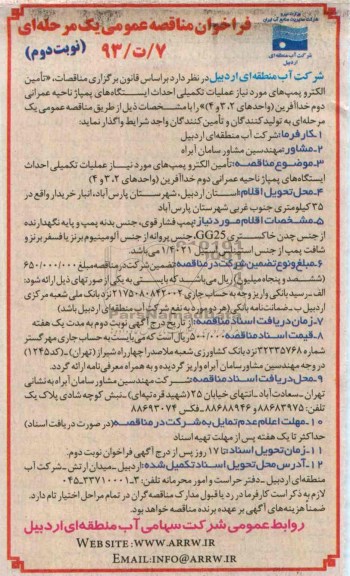 وزارت نیرو
شرکت مدیریت منابع آب ایران
شرکت آب منطقه‌ای اردبیل
فراخوان مناقصه عمومی یک مرحله‌ای
۹۳/ت/۷ (نوبت دوم)
شرکت آب منطقه‌ای اردبیل در نظر دارد براساس قانون برگزاری مناقصات، «تأمین
الکترو پمپ‌های مورد نیاز عملیات تکمیلی احداث ایستگاه‌های پمپاژ ناحیه عمرانی
دوم خداآفرین (واحدهای ۲،۳ و ۴)» را با مشخصات ذیل از طریق مناقصه عمومی یک
مرحله‌ای به تولید کنندگان و تأمین کنندگان واجد شرایط واگذار نماید:
۱ـ کارفرما: شرکت آب منطقه‌ای اردبیل
۲ـ مشاور: مهندسین مشاور سامان آبراه
۳ـ موضوع مناقصه: تأمین الکترو پمپ‌های مورد نیاز عملیات تکمیلی احداث
ایستگاه‌های پمپاژ ناحیه عمرانی دوم خداآفرین (واحدهای ۲،۳ و ۴)
۴ـ محل تحویل اقلام: استان اردبیل، شهرستان پارس آباد، انبار خریدار واقع در
۳۵ کیلومتری جنوب غربی شهرستان پارس آباد
۵ـ مشخصات اقلام مورد نیاز: پمپ فشار قوی، جنس بدنه پمپ و پایه نگهدارنده
از جنس چدن خاکستری GG25، جنس پروانه از جنس آلومینیوم برنز یا فسفر برنز و
شافت پمپ از جنس استیل ۱/۴۰۲۱ می‌باشد.
۶ـ مبلغ و نوع تضمین شرکت در مناقصه: تضمین شرکت در مناقصه مبلغ ۶۵۰/۰۰۰/۰۰۰
(ششصد و پنجاه میلیون) ریال می‌باشد که بایستی به یکی از صورتهای ذیل ارائه شود:
الف ـ رسید بانکی واریز وجه به حساب جاری ۲۱۷۵۰۸۰۸۴۲۰۰۲ نزد بانک ملی شعبه مرکزی
اردبیل ب ـ ضمانت‌نامه بانکی (هر دو مورد به نفع شرکت آب منطقه‌ای اردبیل باشد)
۷ـ زمان دریافت اسناد مناقصه: از تاریخ درج آگهی نوبت دوم به مدت یک هفته
۸ـ قیمت اسناد مناقصه: ۵۰۰/۰۰۰ ریال است که می‌بایست به حساب جاری مهر گستر
شماره ۳۲۳۳۵۷۶۸ نزد بانک کشاورزی شعبه ملاصدرا چهارراه شیراز (تهران) ـ (کد ۱۲۴۵)
در وجه مهندسین مشاور سامان آبراه واریز گردیده و به همراه معرفی‌نامه ارائه گردد.
۹ـ محل دریافت اسناد مناقصه: شرکت مهندسین مشاور سامان آبراه به نشانی
تهران ـ سعادت آباد ـ انتهای خیابان ۲۵ (شهید قره‌تپه‌ای) ـ نبش کوچه شادی پلاک یک
تلفن: ۸۸۶۸۳۹۷۵ و ۸۸۶۸۸۹۴۶ ـ فکس: ۸۸۶۹۳۰۷۴
۱۰ـ مهلت اعلام عدم تمایل به شرکت در مناقصه: (در صورت دریافت اسناد)
حداکثر تا یک هفته پس از مهلت تهیه اسناد
۱۱ـ زمان تحویل اسناد: تا ۱۷ روز پس از درج آگهی فراخوان نوبت دوم.
۱۲ـ آدرس محل تحویل اسناد تکمیل شده: اردبیل ـ میدان ارتش ـ شرکت آب
منطقه‌ای اردبیل ـ دفتر حراست و امور محرمانه تلفن: ۳-۰۴۵۳۳۷۱۰۰۰۱
لازم به ذکر است کارفرما در رد یا قبول مدارک مناقصه‌گران در تمام مراحل اختیار تام دارد.
ضمناً هزینه‌های آگهی بر عهده برنده مناقصه خواهد بود.
روابط عمومی شرکت سهامی آب منطقه‌ای اردبیل
WEB SITE: WWW.ARRW.IR
EMAIL:INFO@ARRW.IR